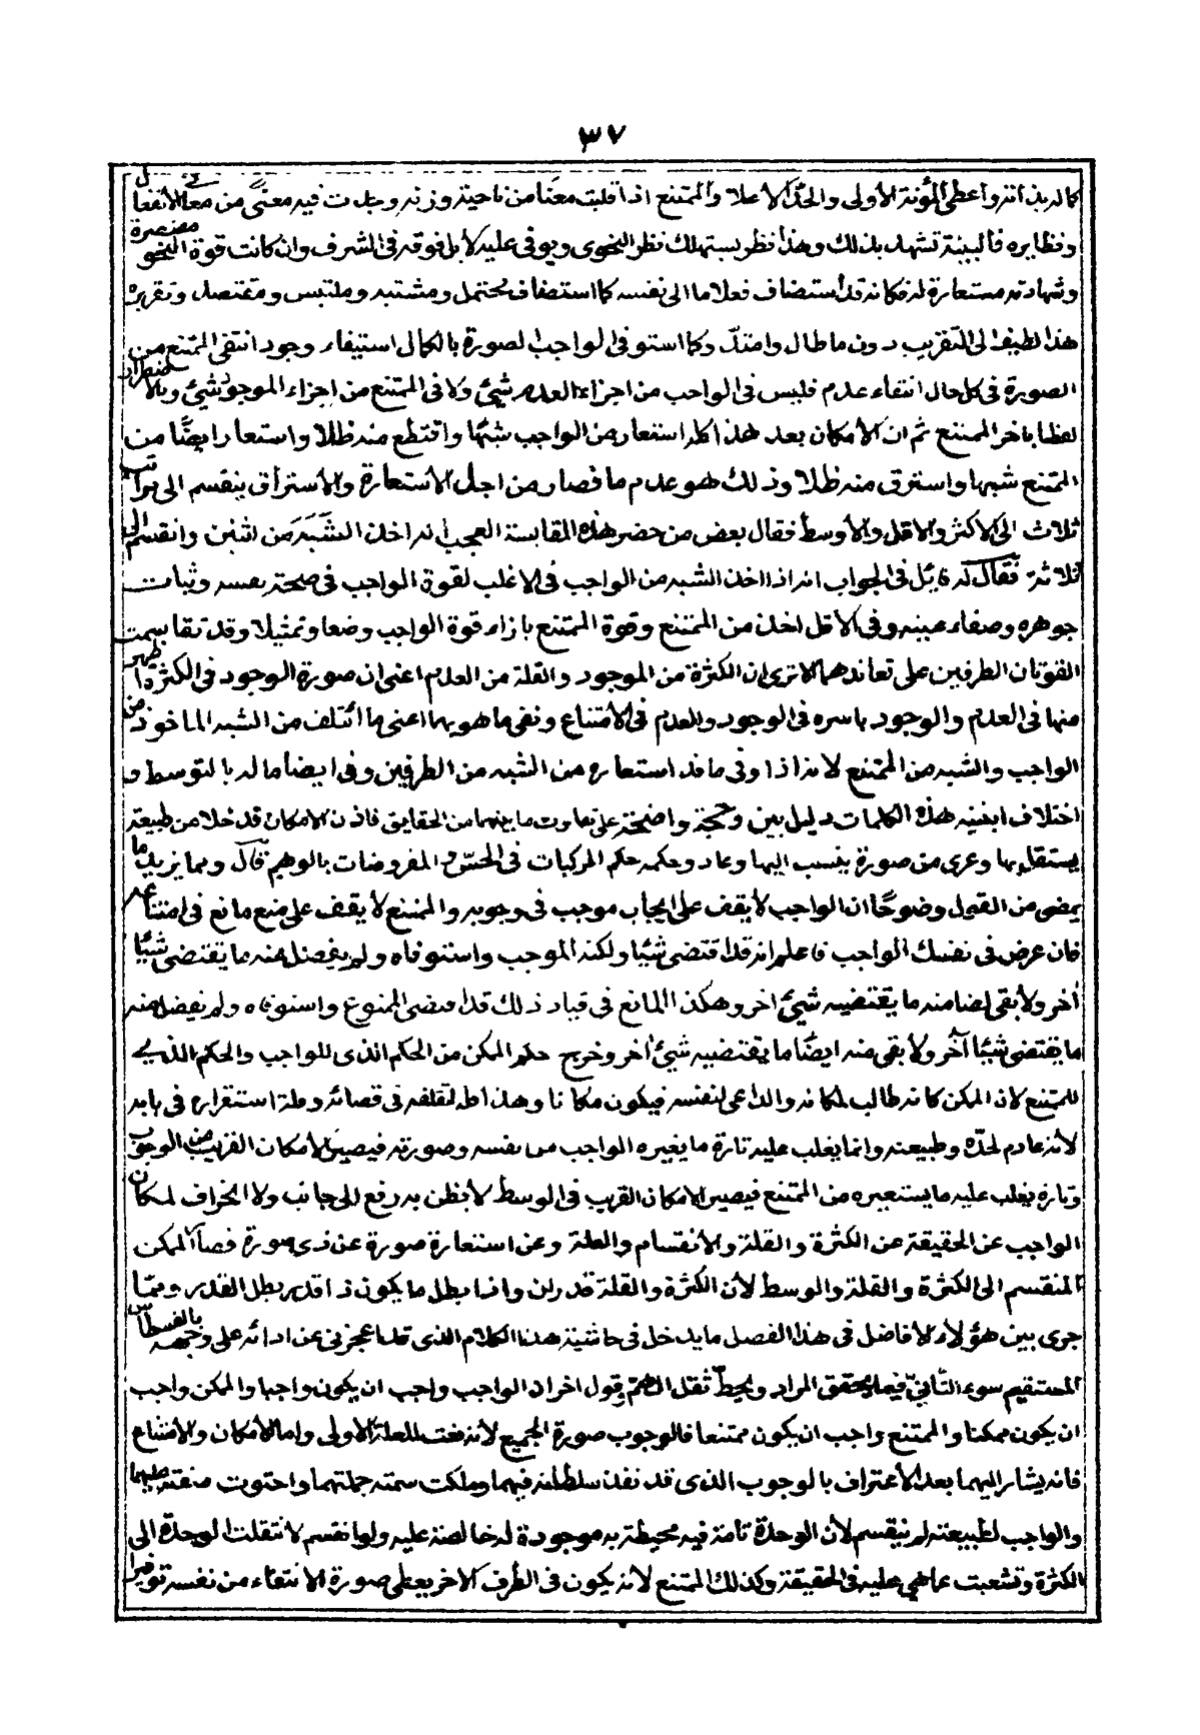 ٣٧
كالدیذانتر واعطی المؤنة الأولی والحدّ الأعلا والممتنع اذا قلبت معنا من ناحیة وزنه وجدت فیه معنًی من معانی الأنفعال
ونظایره فالبینة تشهد بذلك وهذا نظر یستهلك نظر النحوی ویوفی علیه لا بل فوقه فی الشرف وان كانت قوة النحو منعصرة
وشهادته مستعارة له فكانه قد أستضاف فعلا ما الی نفسه كما استضاف محتمل ومشتبه وملتبس ومتمتصل وتقریره
هذا لطیف الی التقریب دون ما طال وامتدّ وكما استوفی الواجب الصورة بالكمال استیفاء وجود انتفی الممتنع من
الصورة فی كل حال انتفاء عدم فلیس فی الواجب من اجزاء العدم شیئ ولا فی الممتنع من اجزاء الموجود شیئ وبالاضطرار
لفظا باخر الممتنع ثم ان الأمكان بعد هذا كله استعار من الواجب شبهًا واقتطع منه ظلا واستعار ایضًا من
الممتنع شبها واسترق منه ظلا وذلك هو عدم ما فصار من اجل الأستعارة والأستراق ینقسم الی مراتب
ثلاث الی الاكثر والاقل والأوسط فقال بعض من حضر هذه المقابسة العجب انه اخذ الشبه من اثنین وانقسم الی
ثلاثة فقال له قایل فی الجواب انه اذا اخذ الشبه من الواجب فی الاغلب لقوة الواجب فی صحة نفسه وثبات
جوهره وصفاء عینه وفی الاقل اخذ من الممتنع وقوة الممتنع بازاء قوة الواجب وضعا وتمثیلا وقد تقاسمت
القوتان الطرفین علی تعاندهما الا تری ان الكثرة من الموجود والقلة من العدم اعنی ان صورة الوجود فی الكثرة اظهر
منها فی العدم والوجود باسره فی الوجود والعدم فی الأمتناع ونفی ما هو بهما اعنی ما ائتلف من الشبه الماخوذ من
الواجب والشبه من الممتنع لانه اذا وفی ما قد استعاره من الشبه من الطرفین وفی ایضا ماله بالتوسط و
اختلاف ابنیة هذه الكلمات دلیل بین وحجة واضحة علی تفاوت ما بینهما من الحقایق فاذن الامكان قد خلا من طبیعة
یستقل بها وعری من صورة ینسب الیها وعاد وحكمه حكم المركبات فی الحسّ والمفروضات بالوهم قال ومما یزید ما
یمضی من القول وضوحًا ان الواجب لا یقف علی ایجاب موجب فی وجوبه والممتنع لا یقف علی منع مانع فی امتناعه
فان عرض فی نفسك الواجب فاعلم انه قد اقتضی شیئا ولكنه الموجب واستوفاه ولم یفضل منه ما یقتضی شیئا
أخر ولا بقی ایضا منه ما یقتضیه شیئ اخر وهكذا المانع فی قیاد ذلك قد اقتضی الممنوع واستوفاه ولم یفضل منه
ما یقتضی شیئا آخر ولا بقی منه ایضًا ما یقتضیه شیئ أخر وخرج حكم الممكن من الحكم الذی للواجب والحكم الذی
للممتنع لان الممكن كانه طالب لمكانه والداعی لنفسه فیكون مكانا وهذا له لقلقه فی قصائه وقلة استقراره فی بابه
لأنه عادم لحدّه وطبیعته وانما یغلب علیه تارة ما یغیره الواجب من نفسه وصورته فیصیر الأمكان القریب من الوجوب
وتارة یغلب علیه ما یستعیره من الممتنع فیصیر الامكان القریب فی الوسط لا یظن به رفع الی جانب ولا انحراف لمكان
الواجب عن الحقیقة عن الكثرة والقلة والانقسام والعلة وعن استعارة صورة عن ذی صورة فصار الممكن
المنقسم الی الكثرة والقلة والوسط لأن الكثرة والقلة قدران واذا بطل ما یكون ذا قدر بطل القدر ومما
جری بین هؤلاء الأفاضل فی هذا الفصل ما یدخل فی حاشیة هذا الكلام الذی قد اعجزنی عن ادائه علی وجهه بالقسطاس
المستقیم سوء التأنی فیما یحقق المراد ویحط ثقل الهم قول اخر ان الواجب واجب ان یكون واجبا والممكن واجب
ان یكون ممكنا والممتنع واجب ان یكون ممتنعا فالوجوب صورة الجمیع لأنه نعت للعلة الأولی واما الأمكان والأمتناع
فانه یشار الیهما بعد الأعتراف بالوجوب الذی قد نفذ سلطانه فیهما وملكت سمته جملتهما واحتوت صنعته علیهما
والواجب لطبیعته لم ینقسم لأن الوحدة تامة فیه محیطة به موجودة له خالصة علیه ولو انقسم لانتقلت الوحدة الی
الكثرة وتشعبت عما هی علیه فی الحقیقة وكذلك الممتنع لانه یكون فی الطرف الاخر یعطی صورة الانتفاء من نفسه توفیرا